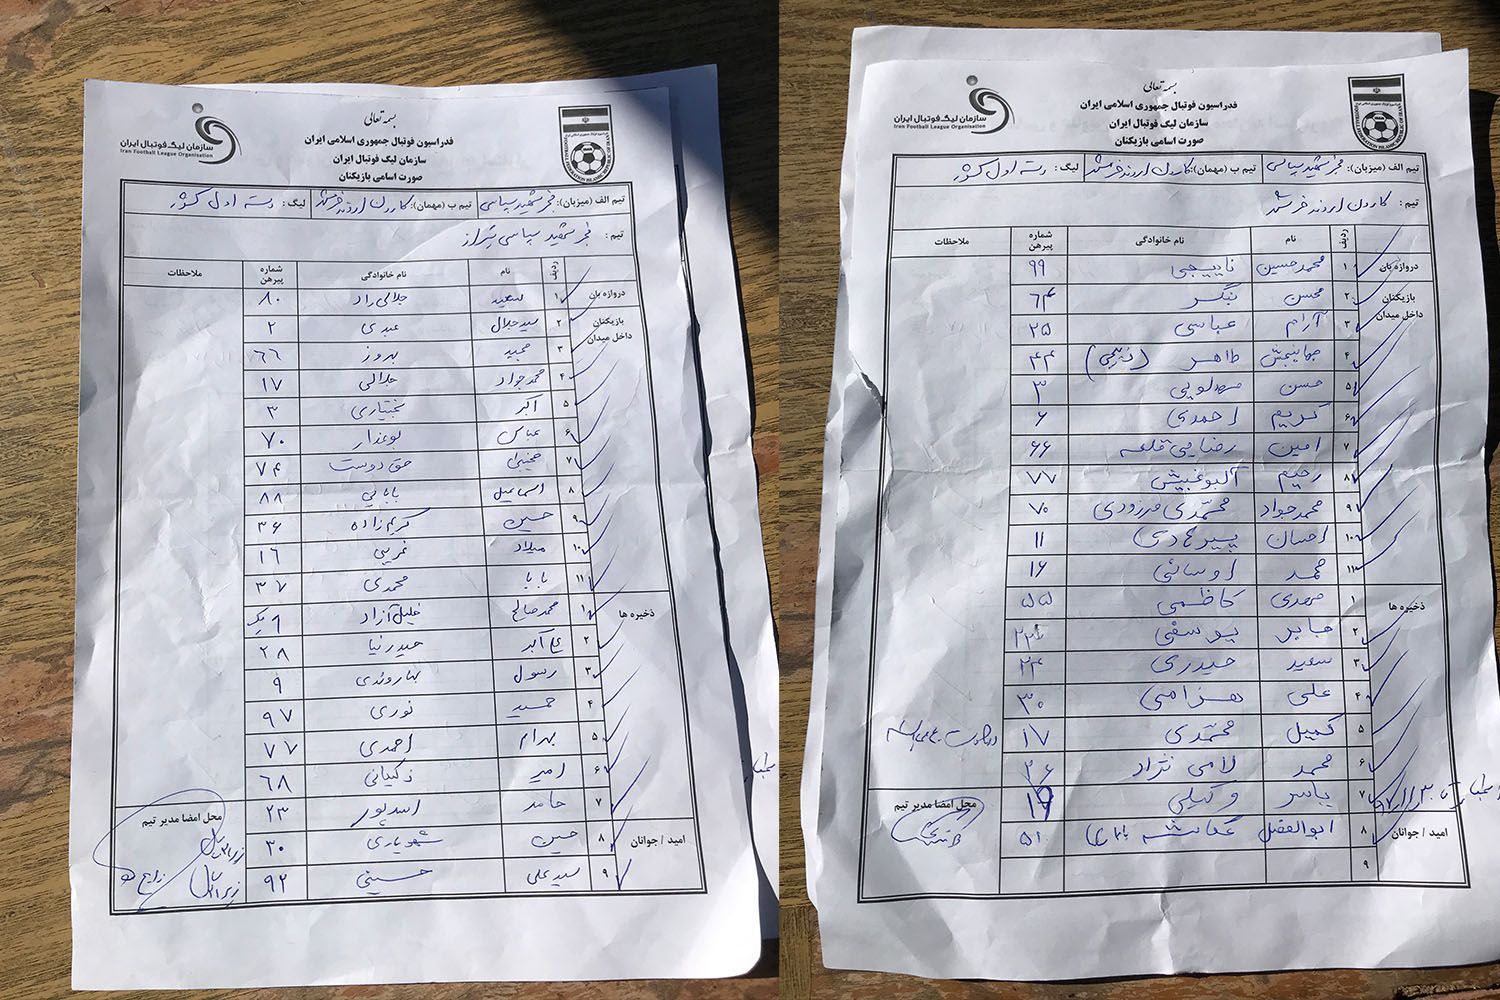 بسمه تعالی
فدراسیون فوتبال جمهوری اسلامی ایران
سازمان لیگ فوتبال ایران
صورت اسامی بازیکنان
سازمان لیگ فوتبال ایران
Iran Football League Organisation
تیم الف (میزبان): فجر شهید سپاسی تیم ب (مهمان): کارون اروند خرمشهر لیگ: دسته اول کشور
تیم: فجر شهید سپاسی شیراز
ردیف نام نام خانوادگی شماره پیرهن ملاحظات
دروازه بان ۱ سعید جلالی راد ۸۰
بازیکنان داخل میدان ۲ سید جلال عبدی ۲
۳ مجید بهروز ۶۶
۴ محمد جواد جلالی ۱۷
۵ اکبر بختیاری ۳
۶ عباس بوعذار ۷۰
۷ مجتبی حق دوست ۷۴
۸ اسماعیل بابایی ۸۸
۹ حسین کریم زاده ۳۶
۱۰ میلاد غریبی ۱۶
۱۱ بابا محمدی ۳۷
ذخیره ها ۱ محمد صالح خلیل آزاد ۱ یک
۲ علی اکبر حیدرنیا ۲۸
۳ رسول بهاروندی ۹
۴ حمید نوری ۹۷
۵ بهرام احمدی ۷۷
۶ امیر ذکیانی ۶۸
۷ حامد اسدپور ۲۳
امید / جوانان ۸ حسین شهریاری ۲۰
۹ سید علی حسینی ۹۲
محل امضا مدیر تیم
بسمه تعالی
فدراسیون فوتبال جمهوری اسلامی ایران
سازمان لیگ فوتبال ایران
صورت اسامی بازیکنان
سازمان لیگ فوتبال ایران
Iran Football League Organisation
تیم الف (میزبان): فجر شهید سپاسی تیم ب (مهمان): کارون اروند خرمشهر لیگ: دسته اول کشور
تیم: کارون اروند خرمشهر
ردیف نام نام خانوادگی شماره پیرهن ملاحظات
دروازه بان ۱ محمد حسین نایبجی ۹۹
بازیکنان داخل میدان ۲ محسن تنگسر ۶۴
۳ آرام عباسی ۲۵
۴ جهانبخش طاهر ۴۴
۵ حسن مهلویی ۳
۶ کریم احمدی ۶
۷ امین رضایی قلعه ۶۶
۸ رحیم آلبوغبیش ۷۷
۹ محمد جواد محمدی مرزودی ۷۰
۱۰ احسان پیرهادی ۱۱
۱۱ محمد اوسانی ۱۶
ذخیره ها ۱ مهدی کاظمی ۵۵
۲ جابر یوسفی
۳ سعید حیدری ۲۴
۴ علی هزامی ۳۰
۵ کمیل محمدی ۱۷
۶ محمد لامی نژاد ۲۶
۷ یاسر وکیلی
امید / جوانان ۸ ابوالفضل عکاشه ۵۱
۹
محل امضا مدیر تیم